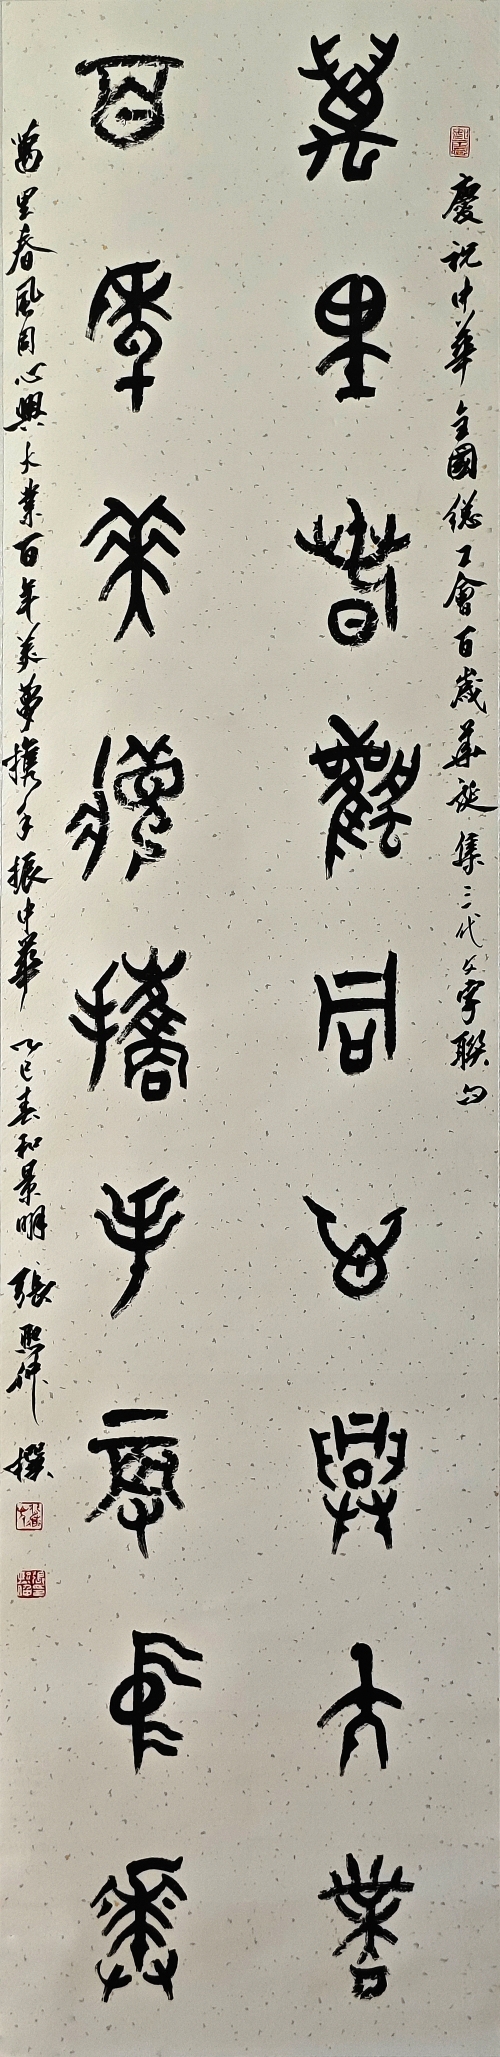 慶祝中華全國總工會百歲華誕集三代文字聯句
萬里春風同心興大業
百年美夢攜手振中華
萬里春風同心興大業百年美夢攜手振中華 乙巳春和景明 張熙仲 撰